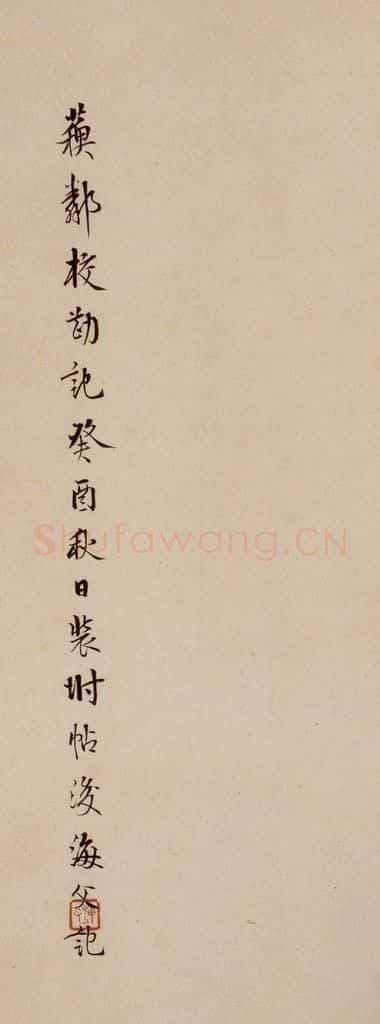 蘓鄰校勘記癸酉秋日裝坿帖後海父記
Shufawang.CN